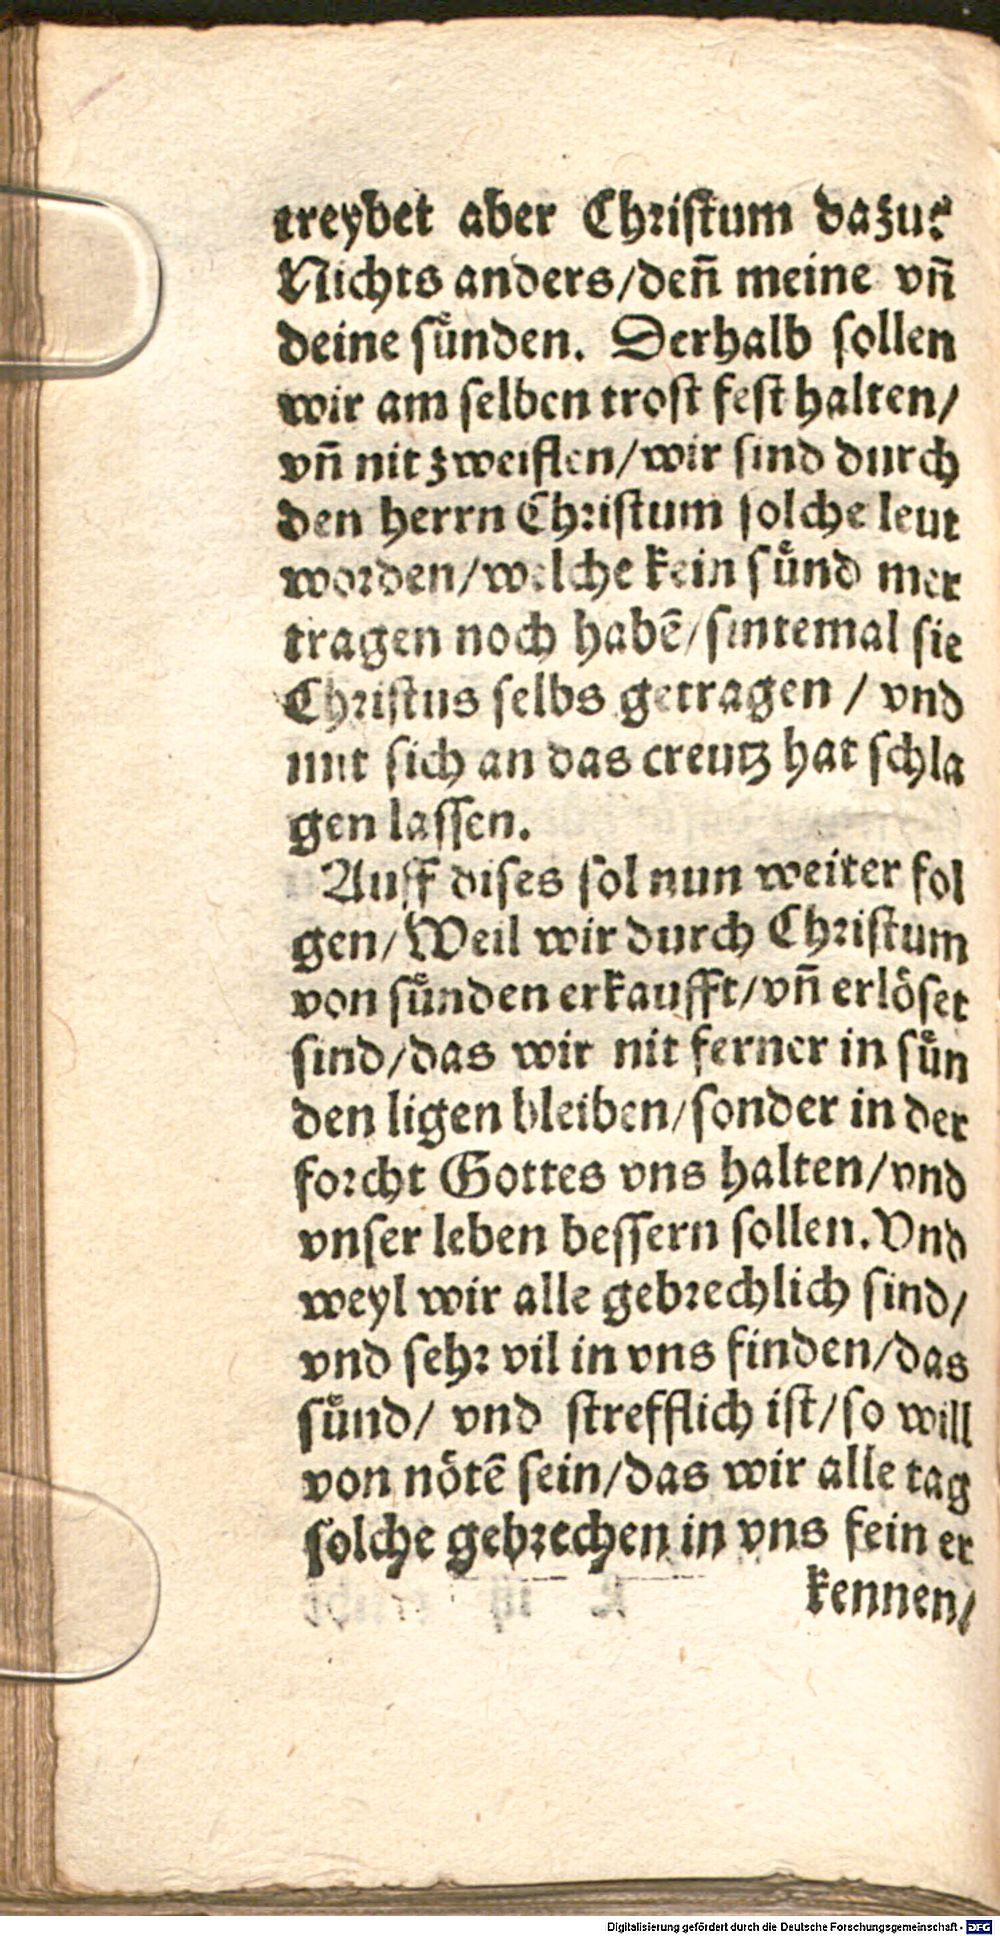 treybet aber Christum dazu?
Nichts anders/deñ meine vñ
deine suͤnden. Derhalb sollen
wir am selben trost fest halten/
vñ nit zweiflen/wir sind durch
den herrn Christum solche leut
worden/welche kein suͤnd mer
tragen noch habē/sintemal sie
Christus selbs getragen / vnd
mit sich an das creutz hat schla
gen lassen.
Auff dises sol nun weiter fol
gen/Weil wir durch Christum
von suͤnden erkaufft/vñ erlöset
sind/das wir nit ferner in suͤn
den ligen bleiben/sonder in der
forcht Gottes vns halten/vnd
vnser leben bessern sollen.Vnd
weyl wir alle gebrechlich sind/
vnd sehr vil in vns finden/das
suͤnd/ vnd strefflich ist/so will
von nötē sein/das wir alle tag
solche gebrechen in vns fein er
kennen/
Digitalisierung gefördert durch die Deutsche Forschungsgemeinschaft - DFG